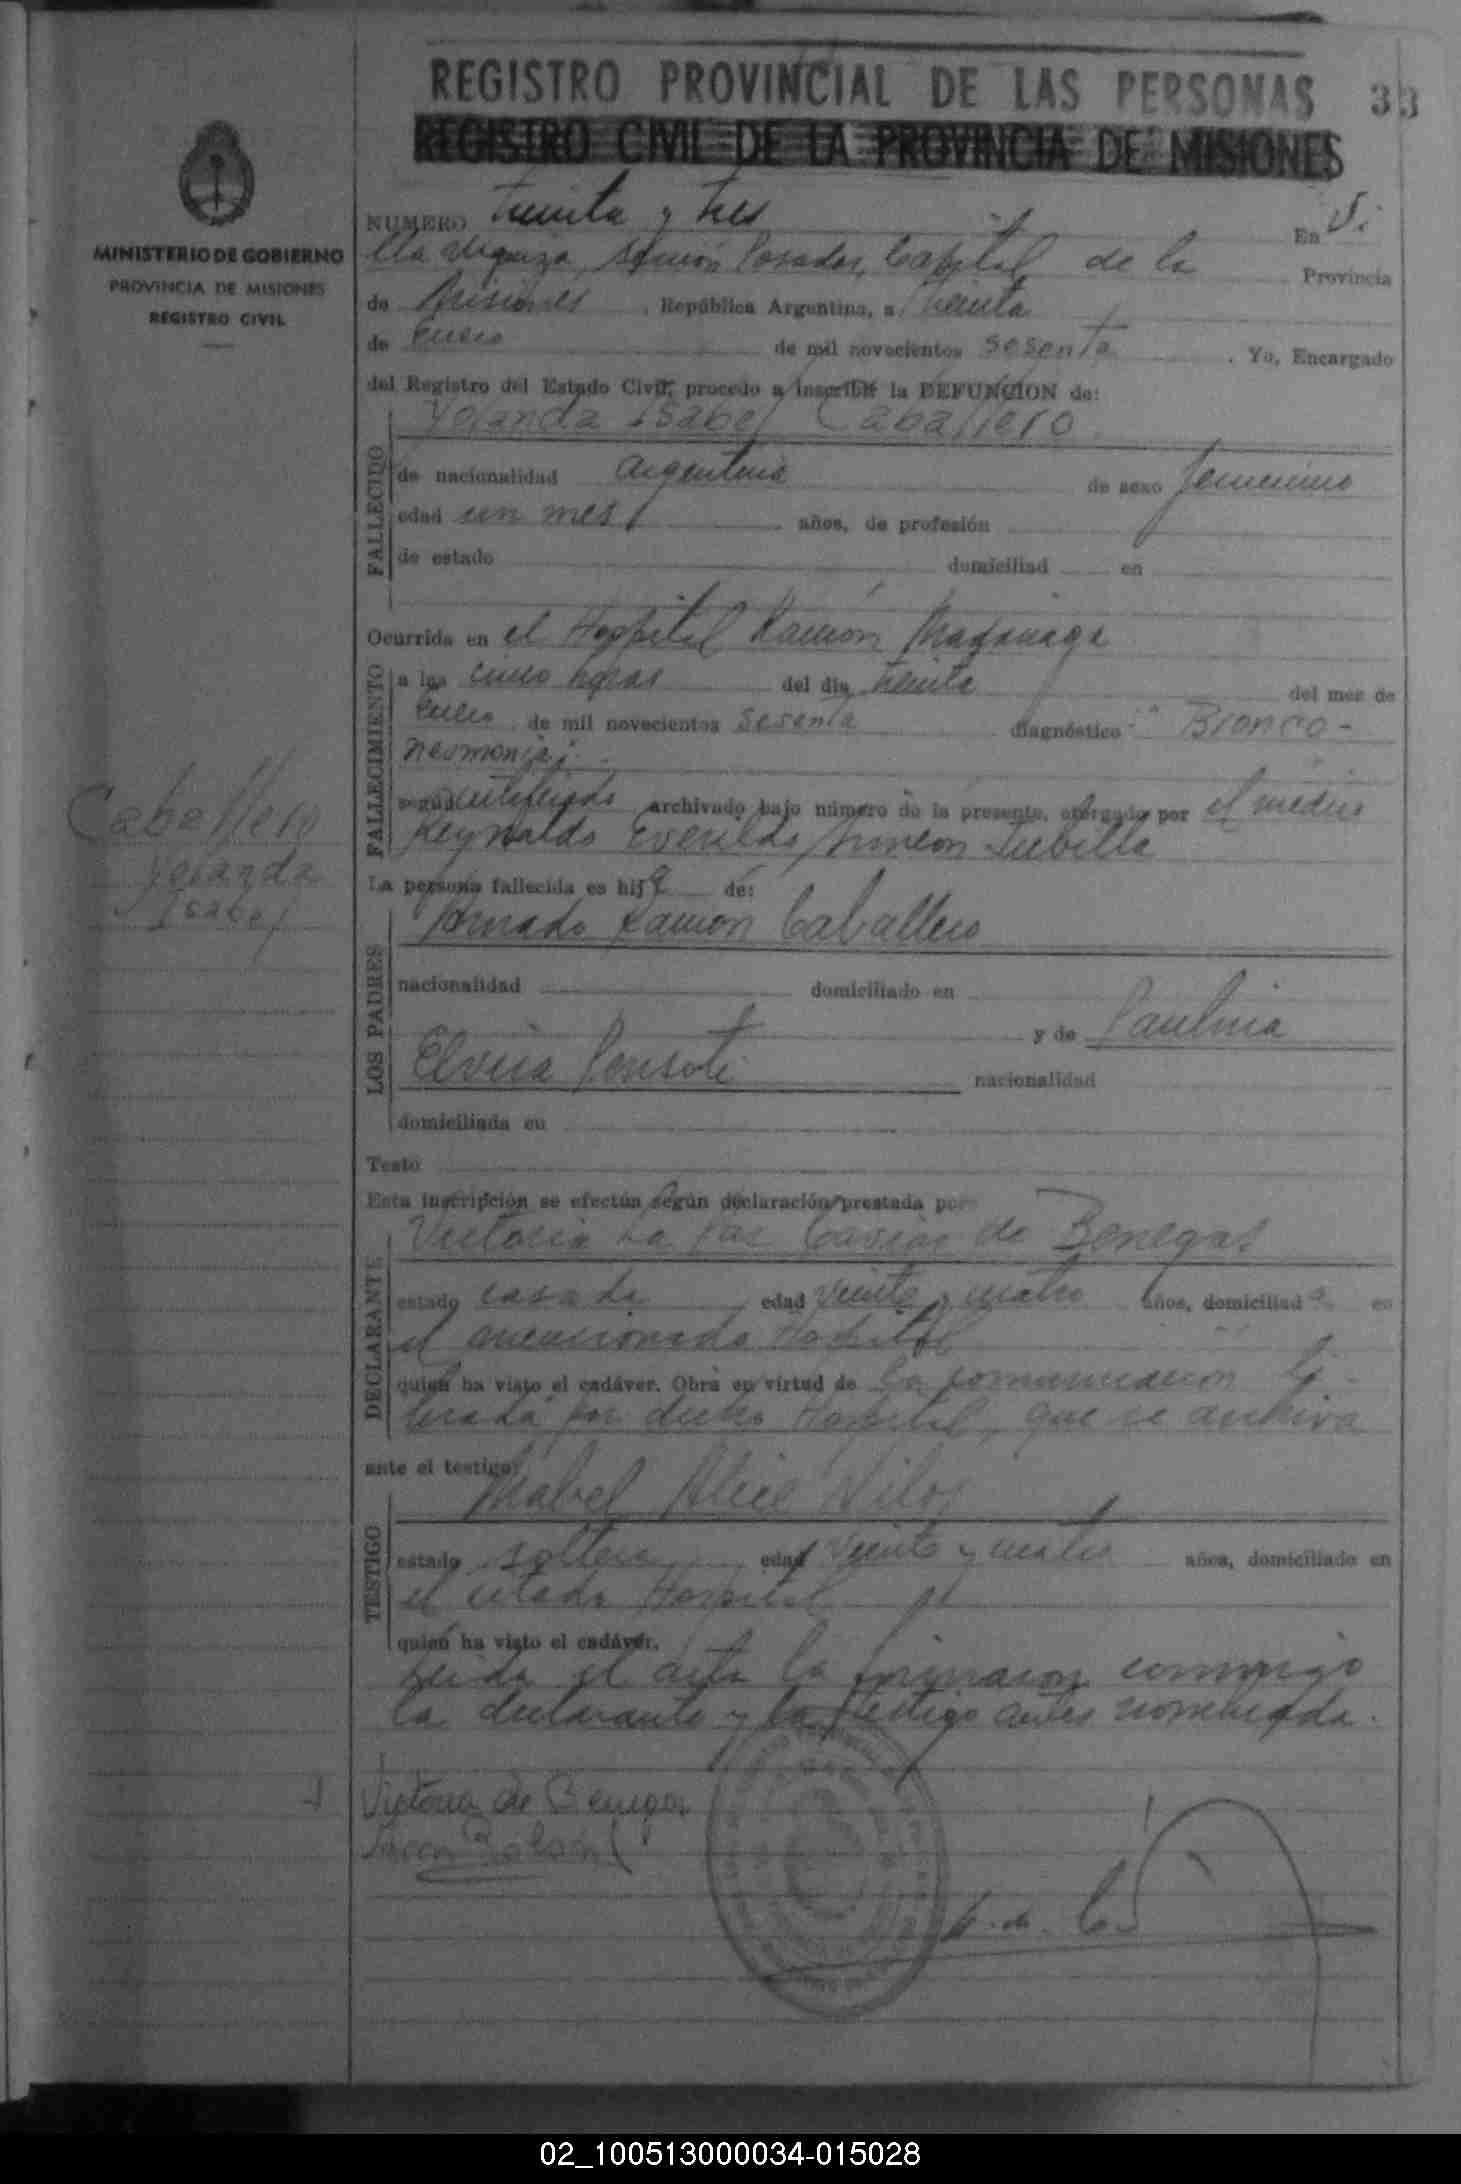 REGISTRO PROVINCIAL DE LAS PERSONAS 33
REGISTRO CIVIL DE LA PROVINCIA DE MISIONES
MINISTERIO DE GOBIERNO
PROVINCIA DE MISIONES
REGISTRO CIVIL
NUMERO treinta y tres En Vi
lla Urquiza, Posadas, Capital de la Provincia
de Misiones, República Argentina, a treinta
de Enero de mil novecientos sesenta. Yo, Encargado
del Registro del Estado Civil, procedo a inscribir la DEFUNCION de:
Yolanda Isabel Caballero
FALLECIDO
de nacionalidad argentina de sexo femenino
edad un mes años, de profesión
de estado domiciliad en
Ocurrida en el Hospital Ramón Madariaga
FALLECIMIENTO
a las cinco horas del día treinta del mes de
Enero de mil novecientos sesenta diagnóstico "Bronco-
neomonía".
según certificado archivado bajo número de la presente, otorgado por el médico
Reynaldo Everildo
Caballero
Yolanda
Isabel
La persona fallecida es hija de:
LOS PADRES
Amado Ramón Caballero
nacionalidad domiciliado en
y de Paulina
Elvira Pensoti nacionalidad
domiciliada en
Testo
Esta inscripción se efectúa según declaración prestada por
DECLARANTE
Victoria La Paz de Benegas
estado casada edad veinte y cuatro años, domiciliada en
el mencionado Hospital
quien ha visto el cadáver. Obra en virtud de la comunicación li-
brada por dicho Hospital, que se archiva
ante el testigo:
TESTIGO
Mabel Alice
estado soltera edad veinte y cuatro años, domiciliado en
el citado Hospital
quien ha visto el cadáver.
Leida el acta la firmaron conmigo
la declarante y la testigo antes nombrada.
Victoria de Benegas
02_100513000034-015028